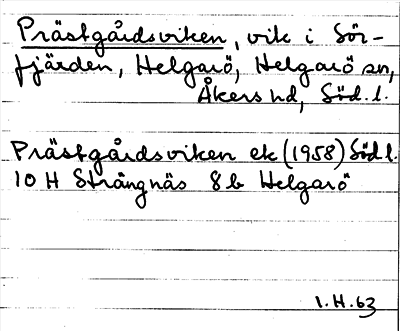 Prästgårdsviken, vik i Sör-
fjärden, Helgarö, Helgarö sn,
Åkers hd, Söd.l.
Prästgårdsviken ek (1958) Södl.
10 H Strängnäs 8b Helgarö
1.H.63